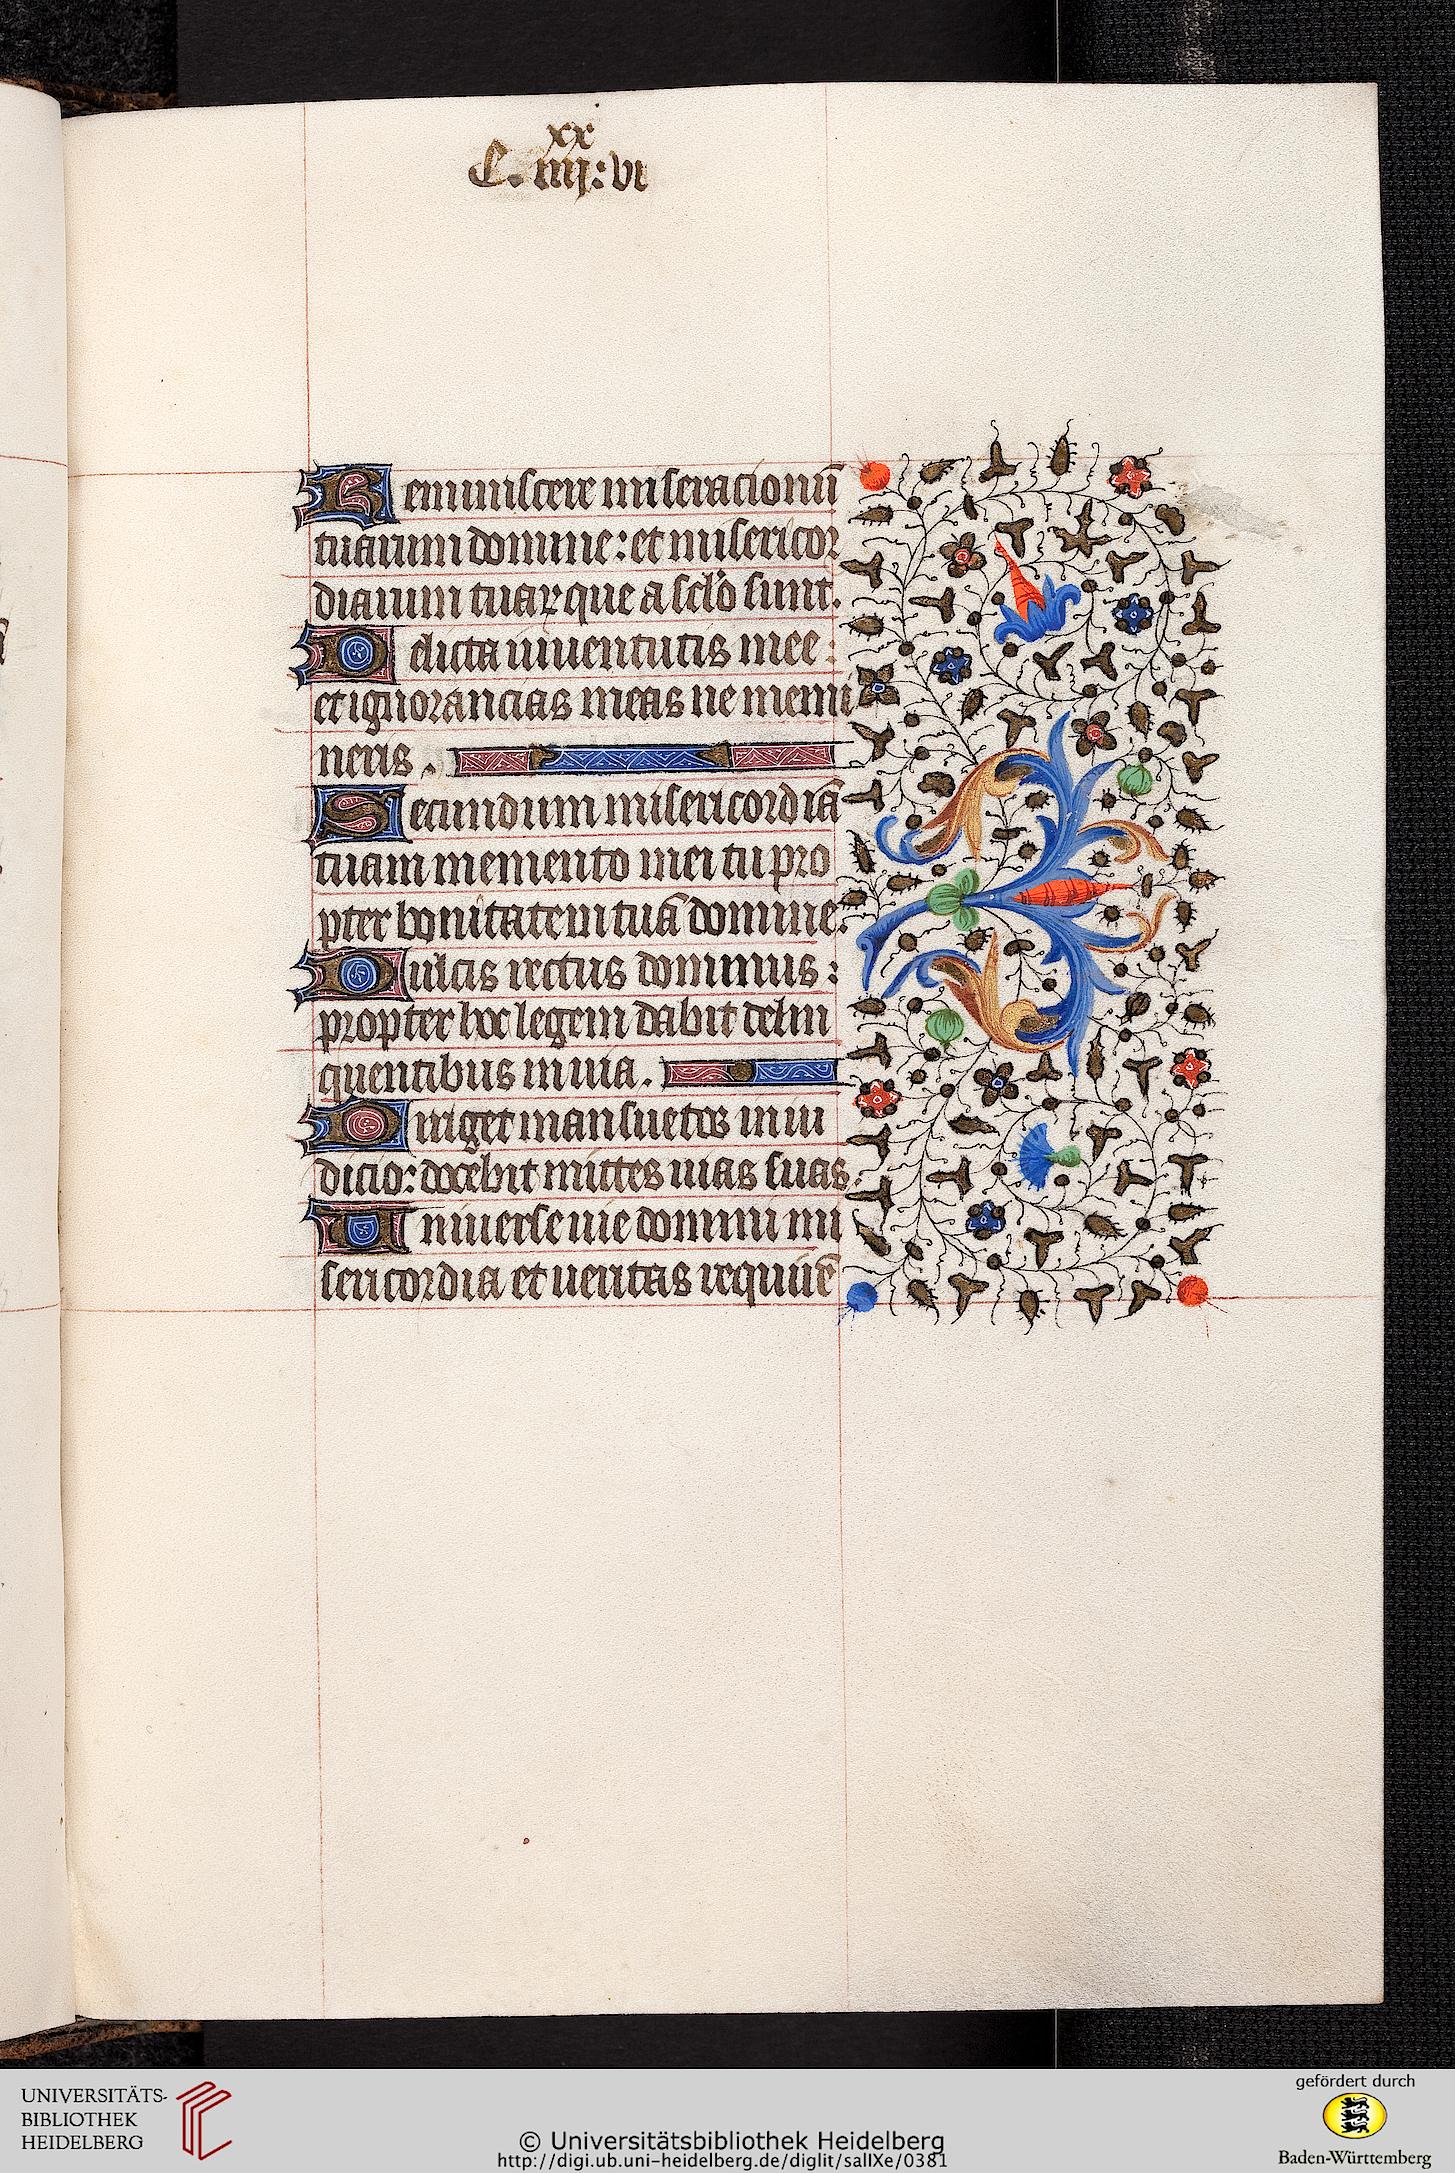 xx
C. iiij: vi
Reminiscere miseracionū
tuarum domine: et misericor
diarum tuaꝝ que a sclo sunt.
Delicta iuuentutis mee:
et ignorancias meas ne memi
neris.
Secundum misericordiā
tuam memento mei tu pro
pter bonitatem tuā domine:
Dulcis rectus dominus:
propter hoc legem dabit delin
quentibus in uia.
Diriget mansuetos in iu
dicio: docebit mittes uias suas.
Uniuerse uie domini mi
sericordia et ueritas requirē
UNIVERSITÄTS-
BIBLIOTHEK
HEIDELBERG
© Universitätsbibliothek Heidelberg
http://digi.ub.uni-heidelberg.de/diglit/salIXe/0381
gefördert durch
Baden-Württemberg